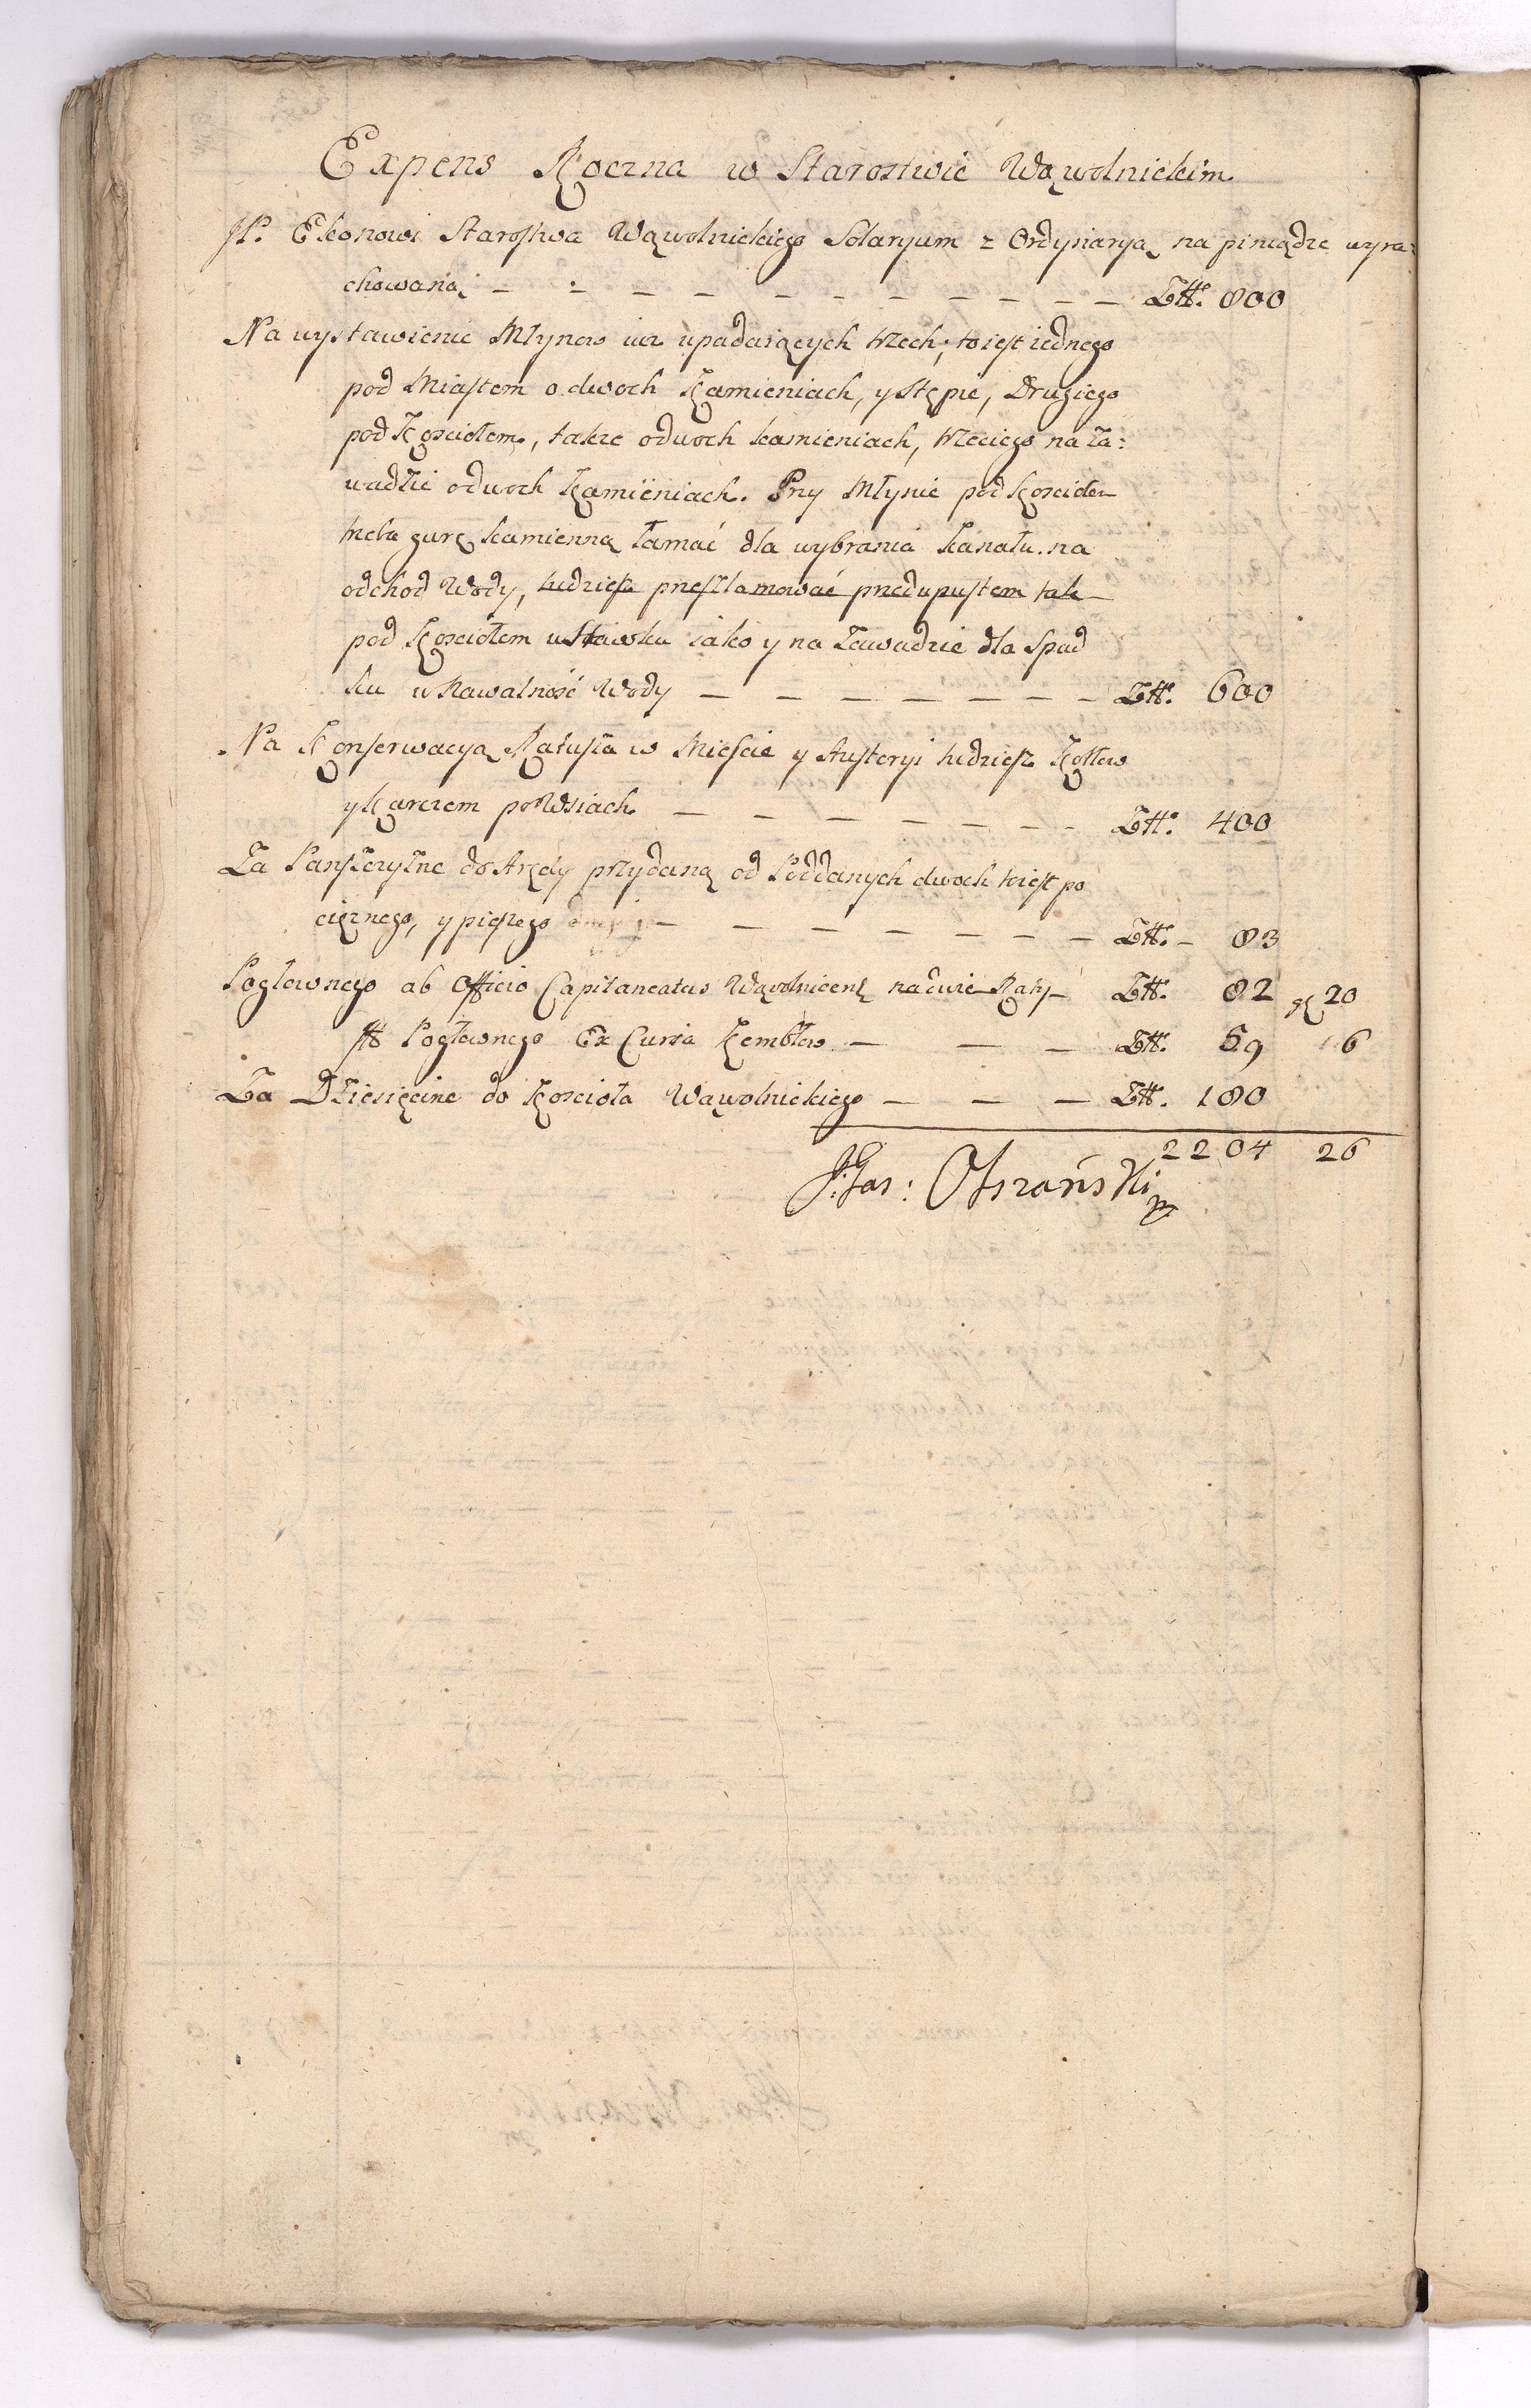 Expens Roczna w Starostwie Wąwolnickim
JP. Ekonowi Starostwa Wąwolnickiego Solaryum z Ordynaryą na pieniądze wyra:
chowaną - - - - - - - - - - - Ztt. 800
Na wystawienie Młynow iuz upadaiących trzech; to iest iednego
pod Miastem o dwoch Kamieniach, y Stępie, Drugiego
pod Kosciołem, takze o dwoch kamieniach, trzeciego na Za:
wadzie o dwoch Kamieniach. Przy Młynie pod Kosciołem
trzeba gurę kamienną łamać dla wybrania kanału na
odchod Wody, tudziesz przeszlamować przed upustem tak
pod Kosciołem w Stawku iako y na Zawadzie dla Spad
ku w Nawalność Wody - - - - - - - Ztt. 600
Na Konserwacyą Ratusza w Mieście y Austeryi tudziesz Kotłow
y Karczem po Wsiach - - - - - - - Ztt. 400
Za Panszczyznę do Arędy przydaną od Poddanych dwoch to iest po
ciężnego, y pieszego - - - - - - - Ztt. - 83
Pogłownego ab Officio Capitaneatus Wąwolnicens na dwie Raty - Ztt. 82 gr 20
Pogłownego Ex Curia Kembłow - - - Ztt. 59 6
Za Dziesięcinę do Koscioła Wąwolnickiego - - - Ztt. 180
2204 26